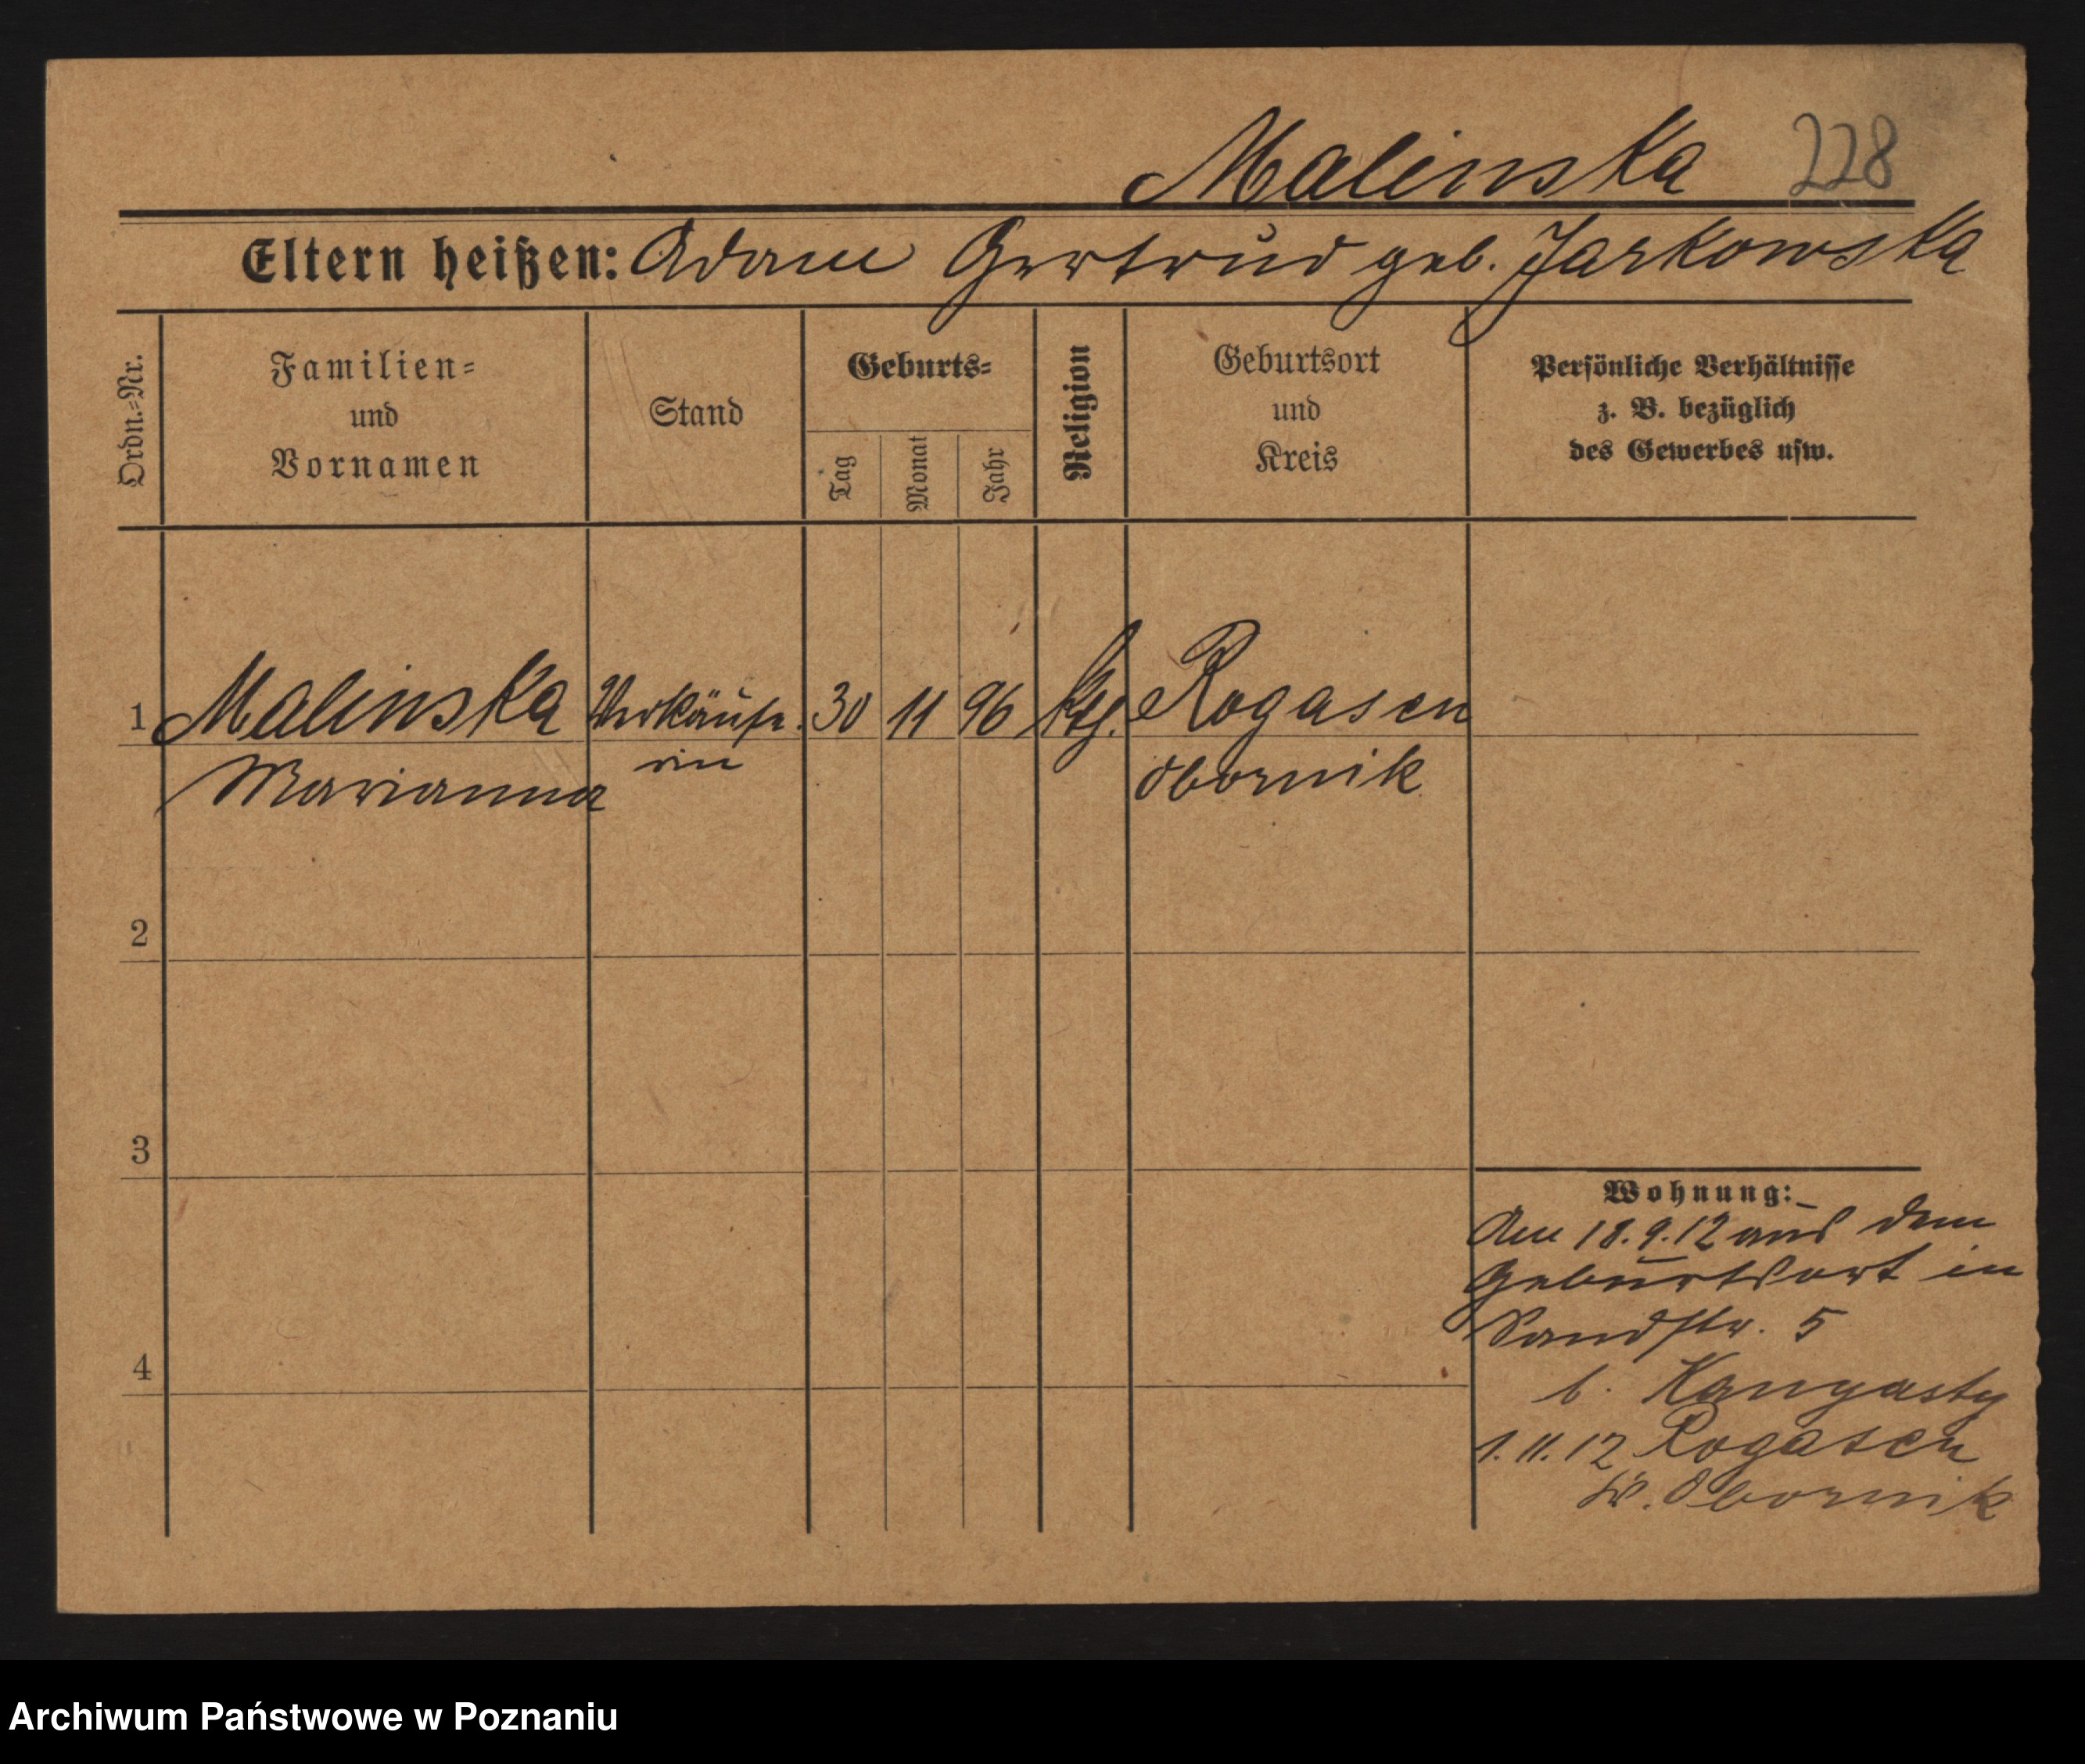 Malinska 228
Eltern heißen: Adam Gertrud geb. Jarkowska
Ordn.=Nr.
Familien=
und
Vornamen
Stand
Geburts=
Tag
Monat
Jahr
Religion
Geburtsort
und
Kreis
Persönliche Verhältnisse
z. B. bezüglich
des Gewerbes usw.
1 Malinska Verkäufe 30 11 96 kth. Rogasen
Marianna rin Obornik
2
3
4
Wohnung:
Am 18.9.12 aus dem
Geburtsort in
Sandstr. 5
b.
1.11.12 Rogasen
Kr. Obornik
Archiwum Państwowe w Poznaniu